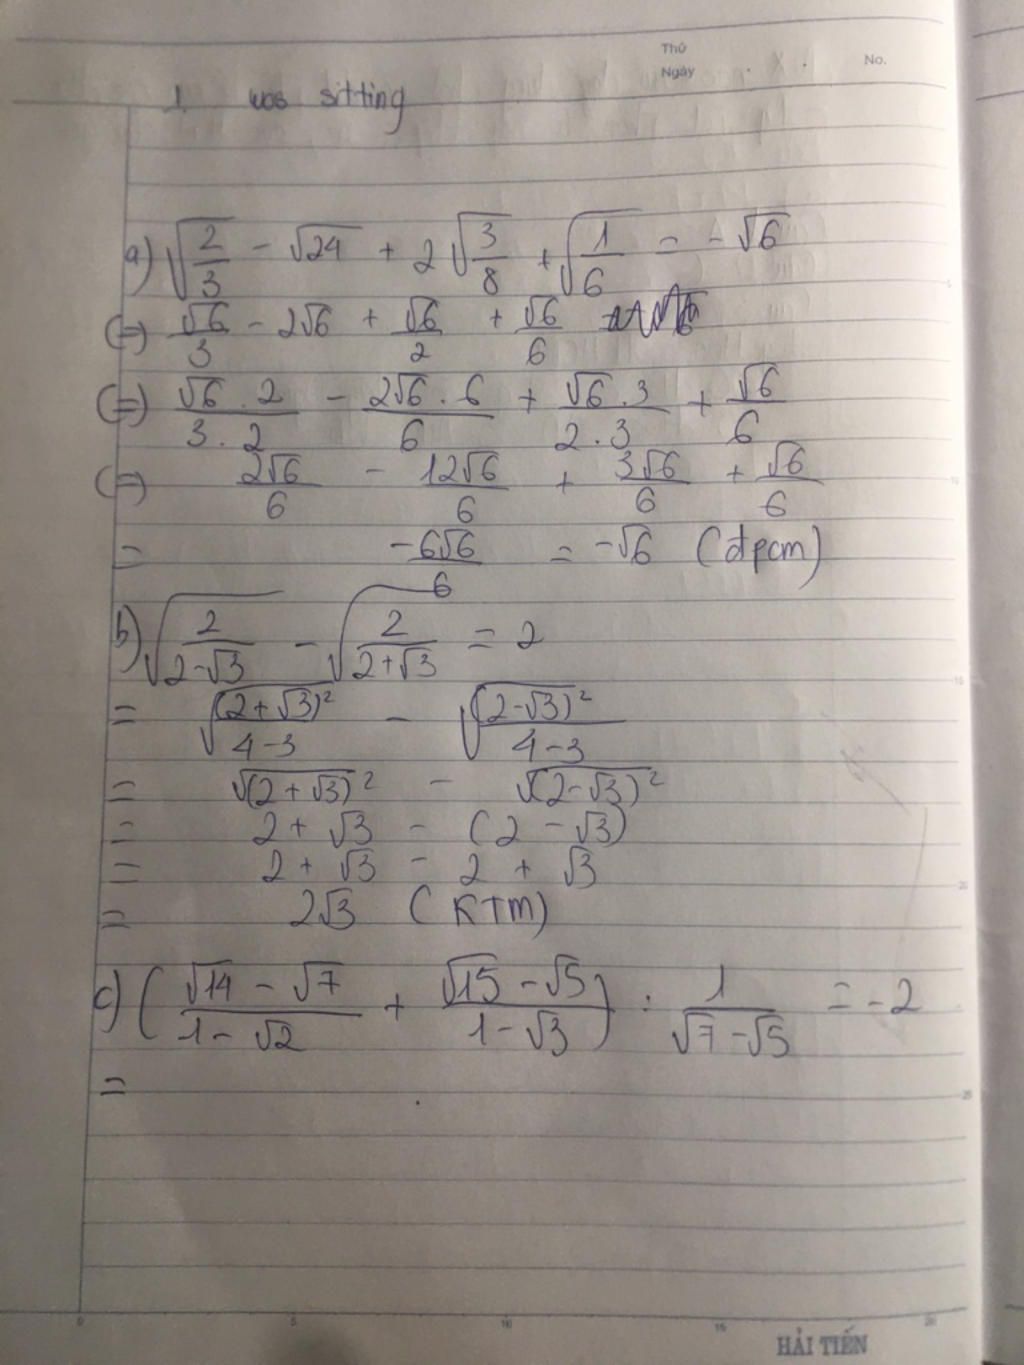 Thứ
Ngày
No.
1 was sitting
a) √(2/3) - √24 + 2√(3/8) + √(1/6) = -√6
(=) √6/3 - 2√6 + √6/2 + √6/6
(=) √6 . 2/3 . 2 - 2√6 . 6/6 + √6 . 3/2 . 3 + √6/6
(=) 2√6/6 - 12√6/6 + 3√6/6 + √6/6
= -6√6/6 = -√6 (đpcm)
b) √(2/(2-√3)) - √(2/(2+√3)) = 2
= √((2+√3)²/(4-3)) - √((2-√3)²/(4-3))
= √(2+√3)² - √(2-√3)²
= 2 + √3 - (2 - √3)
= 2 + √3 - 2 + √3
= 2√3 (KTM)
c) ((√14 - √7)/(1 - √2) + (√15 - √5)/(1 - √3)) : 1/(√7 - √5) = -2
=
0 5 10 15 20
HẢI TIẾN